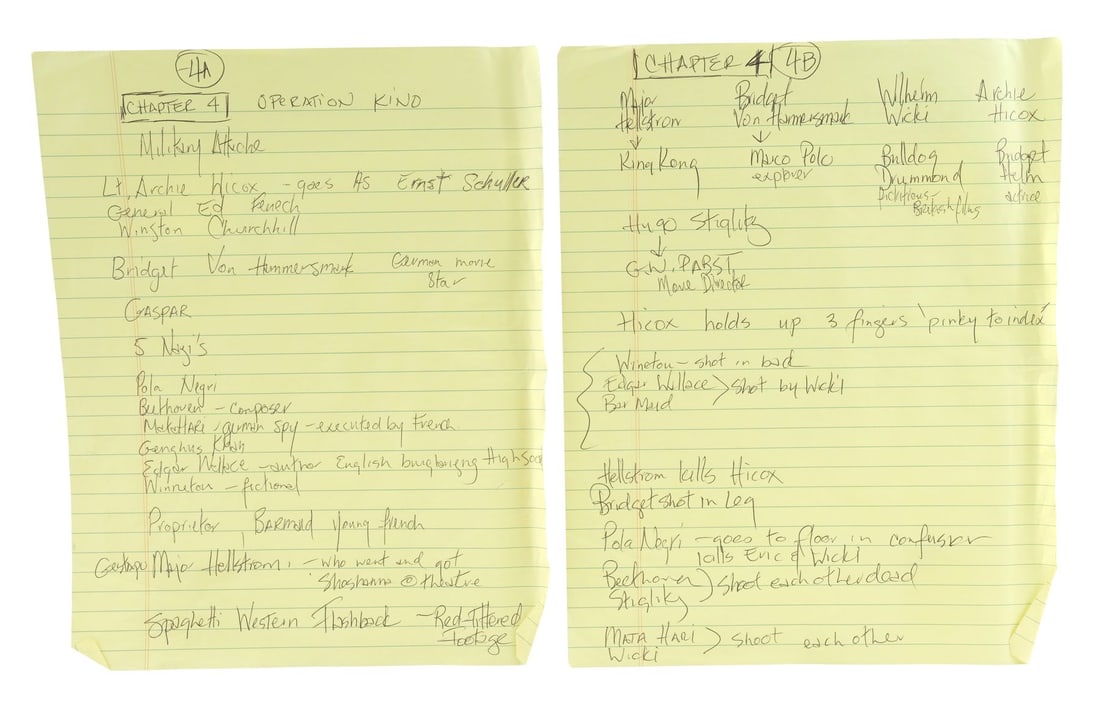 4A
CHAPTER 4 OPERATION KINO
Military Attache
Lt. Archie Hicox - goes As Ernst Schuller
General Ed Fenech
Winston Churchhill
Bridget Von Hammersmark German movie
Star
GASPAR
5 Nazi's
Pola Negri
Beethoven - composer
Mata HARI, german spy - executed by French
Genghus Khan
Edgar Wallace - author English
Winnetou - fictional
Proprietor, BARMAID young french
Gestapo Major Hellstrom, - who went and got
Shoshanna @ theatre
Spaghetti Western Flashback - Red-Filtered
Footage
CHAPTER 4 4B
Major Bridget Wilhelm Archie
Hellstrom Von Hammersmark Wicki Hicox
King Kong Marco Polo Bulldog Bridget
explorer Drummond Helm
fictitious - actrice
British films
Hugo Stiglitz
G.W. PABST
Movie Director
Hicox holds up 3 fingers 'pinky to index'
Winetou - shot in back
Edgar Wallace shot by Wicki
Bar Maid
Hellstrom kills Hicox
Bridget shot in Leg
Pola Negri - goes to floor in confusion
kills Eric & Wicki
Beethoven shoot each other dead
Stiglitz
MATA HARI shoot each other
Wicki